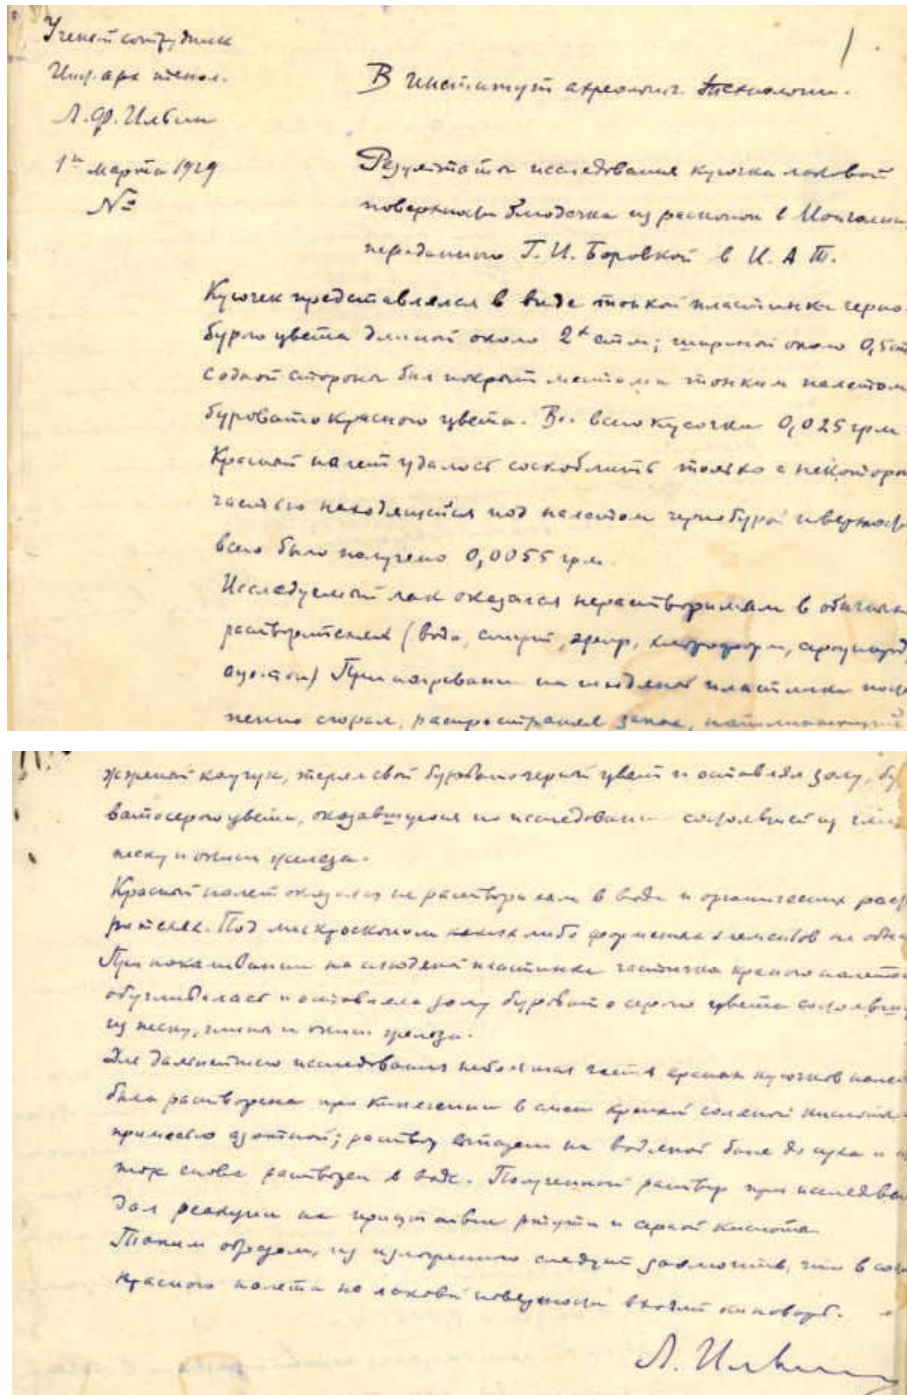 Ученый сотрудник
Инст. арх. технол.
Л. Ф. Ильин
1го марта 1929
№
1.
В Институт археологич. Технологии.
Результаты исследования кусочка лаковой
поверхности блюдечка из раскопок в Монголии,
переданного Г. И. Боровкой в И. А. Т.
Кусочек представлялся в виде тонкой пластинки черно-
бурого цвета длиной около 2х стм; шириной около 0,5 ст
с одной стороны был покрыт местами тонким налетом
буровато красного цвета. Вес всего кусочка 0,025 грм
Красный налет удалось соскоблить только с некоторой
частью находящейся под налетом чернобурой поверхности
всего было получено 0,0055 грм.
Исследуемый лак оказался нерастворимым в обычных
растворителях (вода, спирт, эфир, хлороформ, сероуглерод,
ацетон) При нагревании на слюдяной пластинке
сгорал, распространяя запах, напоминающий
жженый каучук, терял свой буровато черный цвет и оставлял золу, бу
ватосерого цвета, оказавшуюся по исследовании состоявшей из глины
песку и окиси железа.
Красный налет оказался не растворимым в воде и органических раст
рителях. Под микроскопом каких либо форменных элементов не обна
При накаливании на слюдяной пластинке частичка красного налета
обугливалась и оставляла золу буровато серого цвета состоявшую
из песку, глины и окиси железа.
Для дальнейшего исследования небольшая часть красных кусочков налета
была растворена при кипячении в смеси крепкой соляной кислоты
примесью азотной; раствор выпарен на водяной бане до суха и
снова растворен в воде. Полученный раствор при исследовании
дал реакции на присутствие ртути и серной кислоты
Таким образом, из изложенного следует заключить, что в состав
красного налета на лаковой поверхности входит киноварь.
Л. Ильин